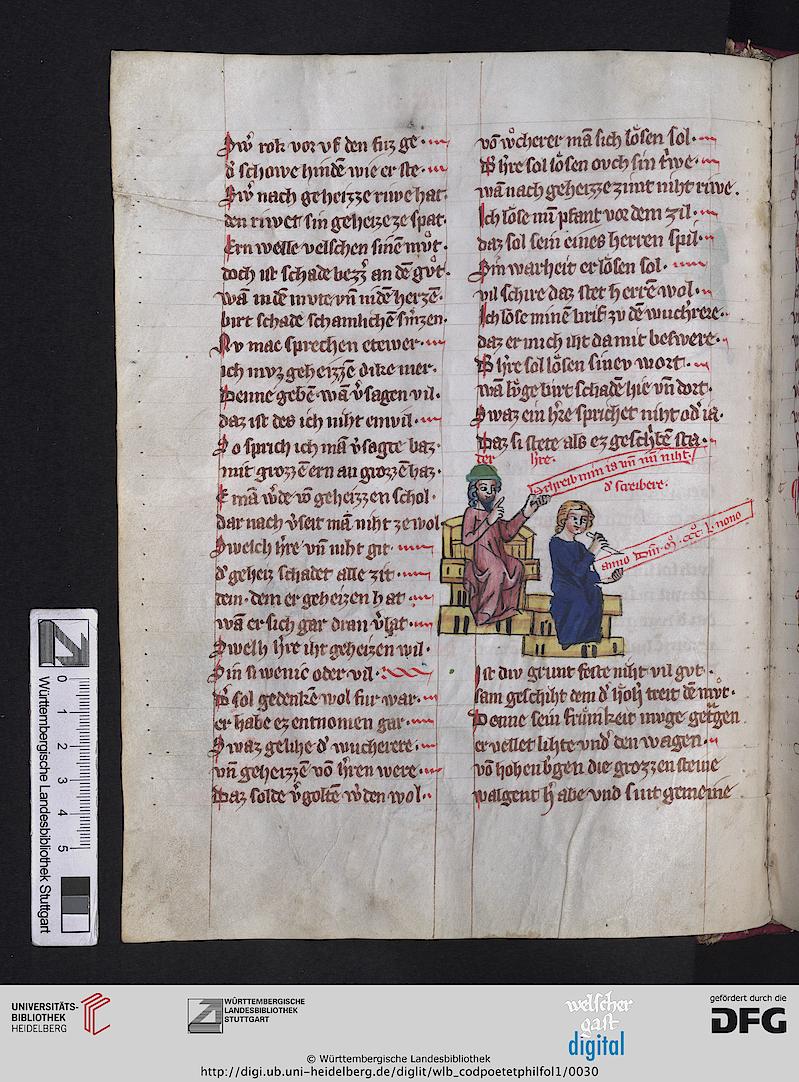 Swͦ rok vor vf den fuz ge·
d᷑ schowe hindē wie er ste·
Swͦ nach geheizze riwe hat·
den riwet sin geheize ze spat·
Ern welle velschen sinē mvͦt·
doch ist schade bezz᷑ an dē gvͦt·
wā in dē mvte vn̄ in dē herzē·
birt schade schamlichē smerzen·
Nv mac sprechen etewer·
ich mvz geheizzē dike mer·
Denne gebē wā v᷑sagen vil·
daz ist des ich niht enwil·
So sprich ich mā v᷑sagte baz·
mit grozzē ern an grozzē haz·
E mā w᷑de vō geheizzen schol·
dar nach v᷑seit mā niht ze wol
Swelch h᷑re vn̄ niht git·
d᷑ geheiz schadet alle zit·
dem· dem er geheizen hat·
wā er sich gar dran v᷑lat·
Swelh h᷑re iht geheizen wil·
Sin si wenic oder vil·
D᷑ sol gedenkē wol fur war·
er habe ez entnomen gar·
Swaz gelihe d᷑ wucherere·
vn̄ geheizzē vō h᷑ren were·
Daz solde v᷑goltē w᷑den wol·
vō wͦcherer mā sich lösen sol·
D᷑ h᷑re sol lösen ovch sin tr᷑we·
wā nach geheizze zimt niht riwe·
Ich löse mī pfant vor dem zil·
daz sol sein eines herren spil·
Sin warheit er lösen sol·
vil schire daz stet herrē wol·
Ich löse minē brif zv dē wuch᷑rere·
daz er mich iht da mit beswere·
D᷑ h᷑re sol lösen sinev wort·
wā lvͤge birt schadē hie vn̄ dort·
Swaz ein h᷑re sprichet niht od᷑ ia·
Daz si stete als ez geschribē sta·
der h᷑re·
Schreib min ia vn̄ mī niht·
d᷑ screibere·
anno Dn̄i· M· ccc· l· nono
Ist div grunt feste niht vil gvt·
sam geschiht dem d᷑ hoh treit dē mvͦt·
Denne sein frumikeit mvge getragen
er vellet lihte vnd᷑ den wagen·
vō hohen b᷑gen die grozzen steine
walgent h᷑ abe vnd sint gemeine
Württembergische Landesbibliothek Stuttgart
0 1 2 3 4 5
UNIVERSITÄTS-
BIBLIOTHEK
HEIDELBERG
WÜRTTEMBERGISCHE
LANDESBIBLIOTHEK
STUTTGART
welscher
gast
digital
gefördert durch die
DFG
© Württembergische Landesbibliothek
http://digi.ub.uni-heidelberg.de/diglit/wlb_codpoetetphilfol1/0030